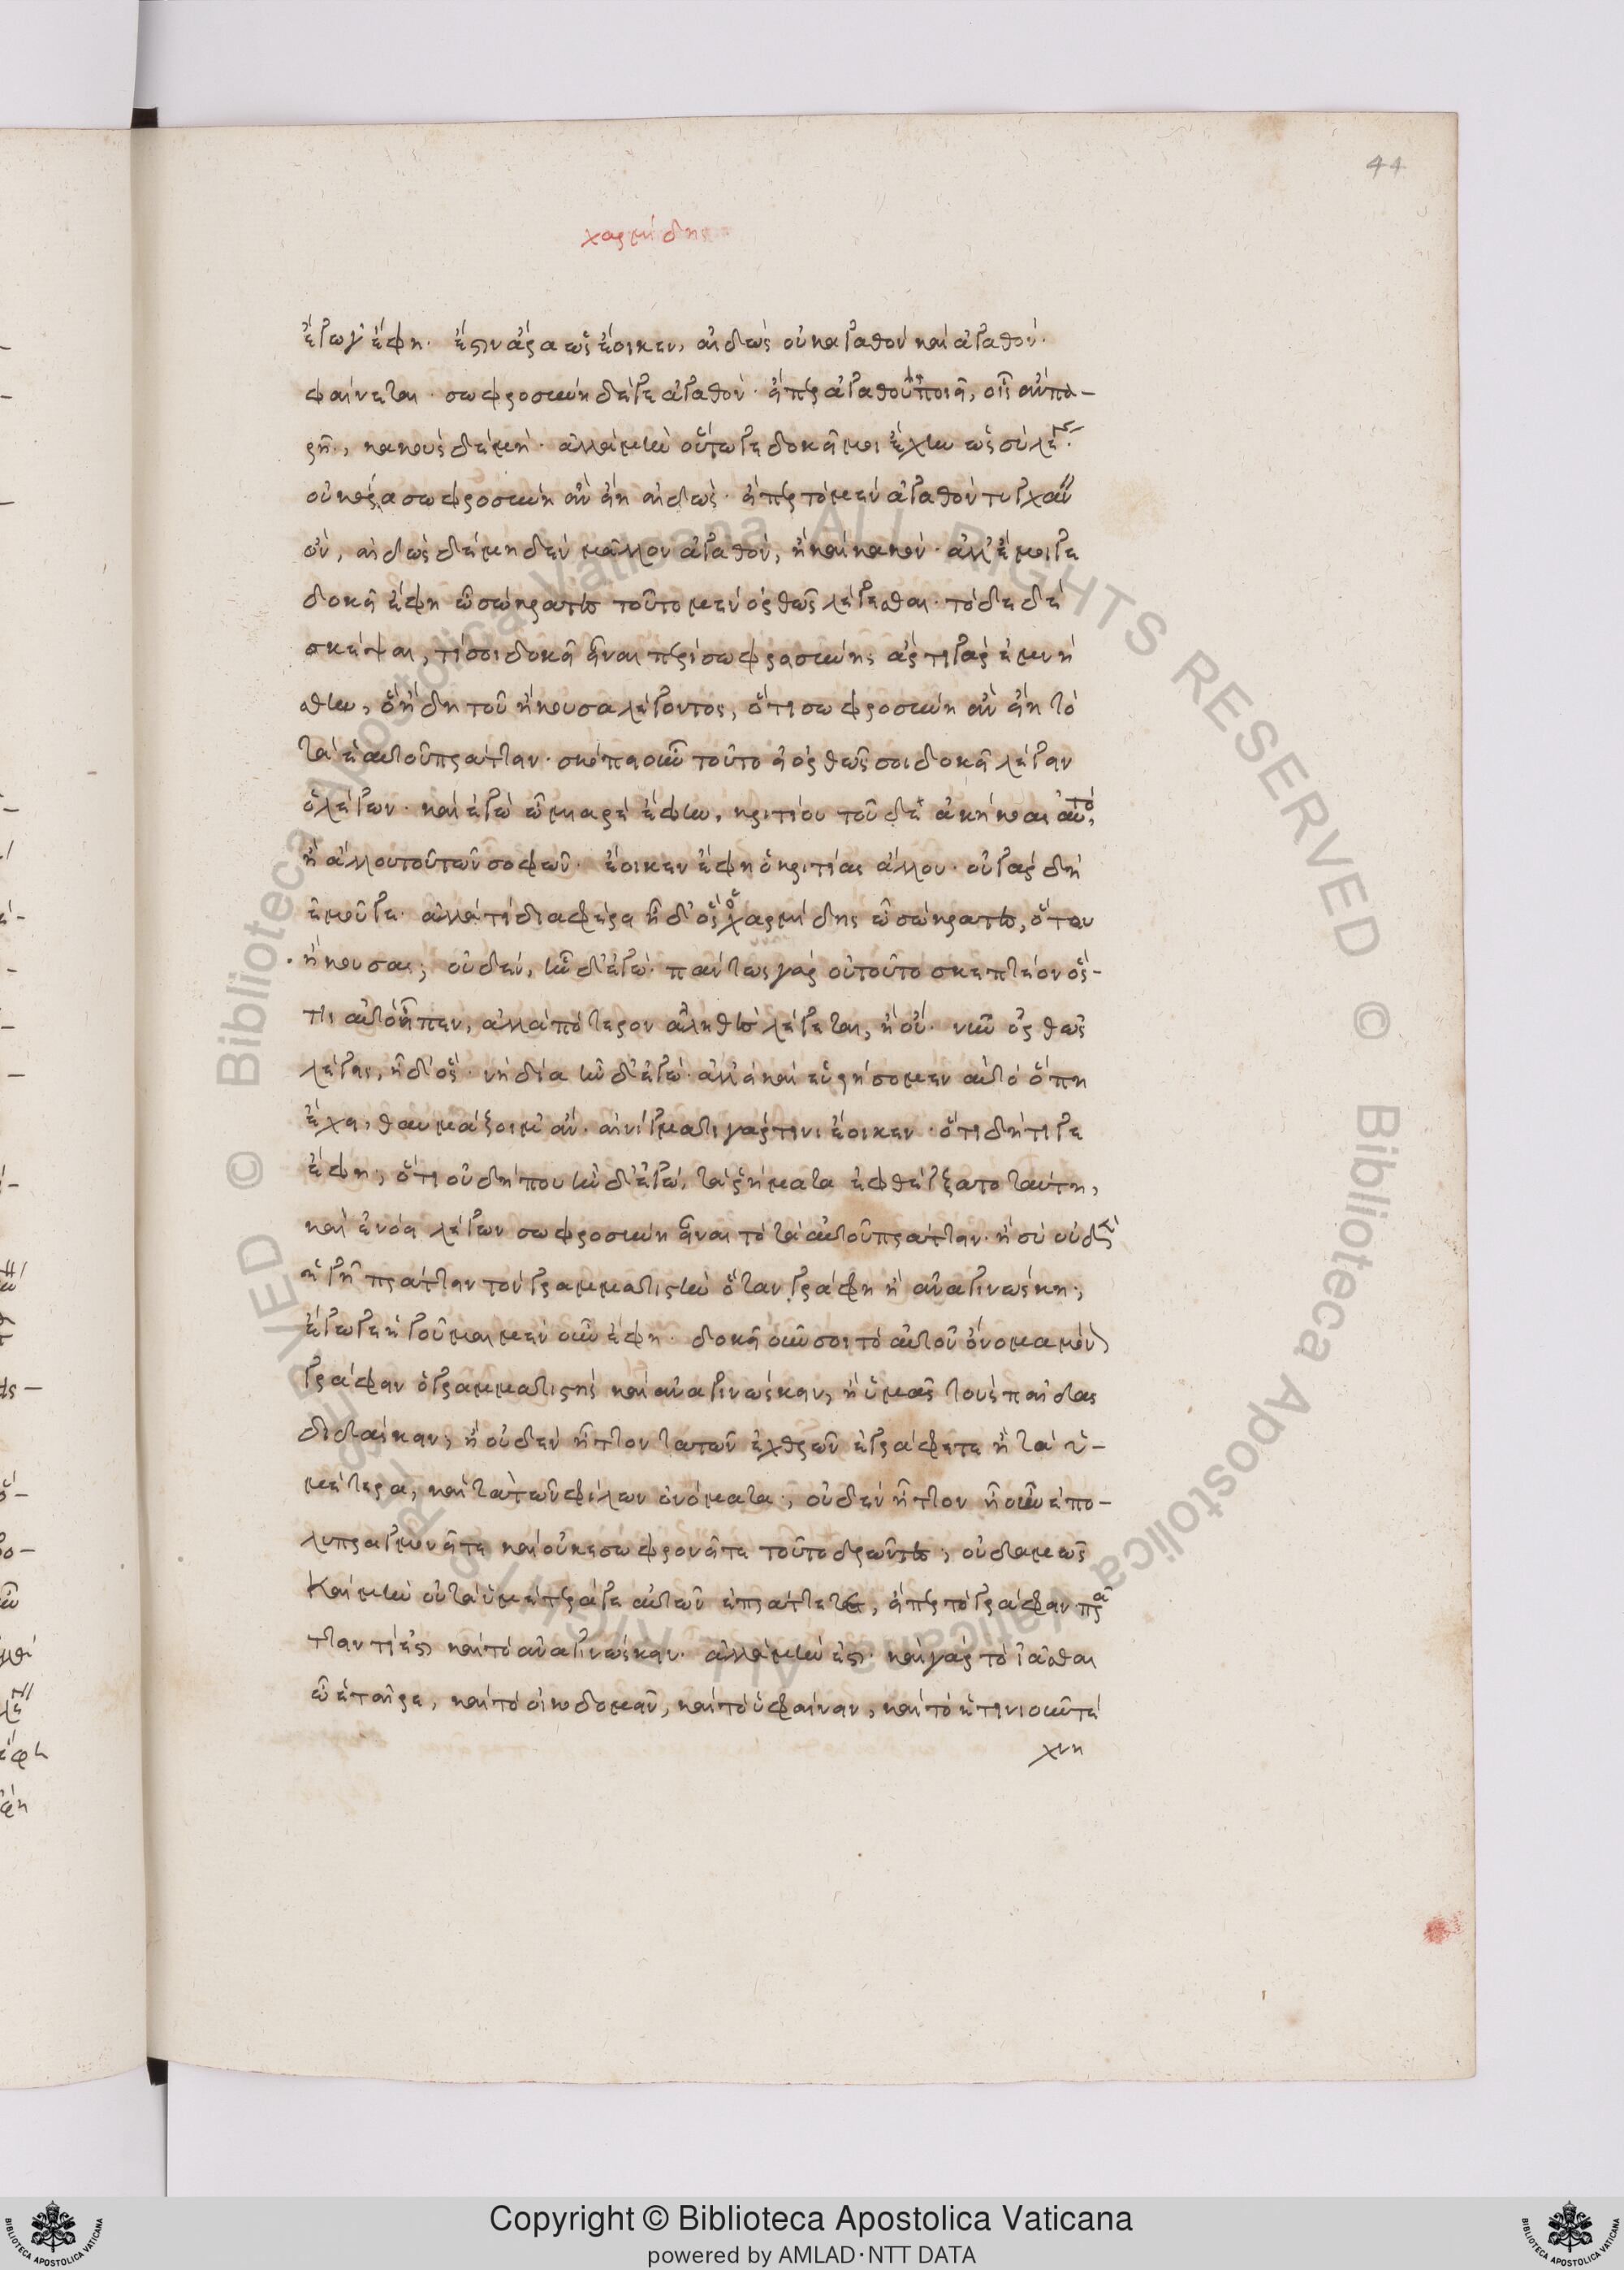 44
χαρμίδης
ἔγωγ' ἔφη. ἔστιν ἄρα ὡς ἔοικεν, αἰδὼς οὐκ ἀγαθὸν καὶ ἀγαθόν.
φαίνεται. σωφροσύνη δέ γε ἀγαθόν. εἴπερ ἀγαθοὺς ποιεῖ, οἷς ἂν πα-
ρῇ, κακοὺς δὲ μή. ἀλλὰ μὴν οὕτω γε δοκεῖ μοι ἔχειν ὡς σὺ λέγεις.
οὐκ ἄρα σωφροσύνη ἂν εἴη αἰδώς. εἴπερ τὸ μὲν ἀγαθὸν τυγχάνει
ὄν, αἰδὼς δὲ μηδὲν μᾶλλον ἀγαθόν, ἢ καὶ κακόν. ἀλλ' ἔμοιγε
δοκεῖ ἔφη ὦ σώκρατες τοῦτο μὲν ὀρθῶς λέγεσθαι. τόδε δὲ
σκέψαι, τί σοι δοκεῖ εἶναι περὶ σωφροσύνης ἄρτι γὰρ ἐμνή
σθην, ὃ ἤδη του ἤκουσα λέγοντος, ὅτι σωφροσύνη ἂν εἴη τὸ
τὰ ἑαυτοῦ πράττειν. σκόπει οὖν τοῦτο εἰ ὀρθῶς σοι δοκεῖ λέγειν
ὁ λέγων. καὶ ἐγὼ ὦ μιαρὲ ἔφην, κριτίου τοῦδε ἀκήκοας αὐτό,
ἢ ἄλλου του τῶν σοφῶν. ἔοικεν ἔφη ὁ κριτίας ἄλλου. οὐ γὰρ δὴ
ἐμοῦ γε. ἀλλὰ τί διαφέρει ἦ δ' ὃς ὁ χαρμίδης ὦ σώκρατες, ὅτου
ἤκουσα; οὐδέν, ἦν δ' ἐγώ. πάντως γὰρ οὐ τοῦτο σκεπτέον ὅς-
τις αὐτὸ εἶπεν, ἀλλὰ πότερον ἀληθὲς λέγεται, ἢ οὔ. νῦν ὀρθῶς
λέγεις, ἦ δ' ὅς. νὴ δία ἦν δ' ἐγώ. ἀλλ' εἰ καὶ εὑρήσομεν αὐτὸ ὅπη
ἔχει, θαυμάζοιμ' ἄν. αἰνίγματι γάρ τινι ἔοικεν. ὅτι δὴ τί γε
ἔφη; ὅτι οὐ δήπου ἦν δ' ἐγώ, τὰ ῥήματα ἐφθέγξατο ταύτη,
καὶ ἐνόει λέγων σωφροσύνη εἶναι τὸ τὰ αὑτοῦ πράττειν. ἢ σὺ οὐδὲν
ἡγῇ πράττειν τὸν γραμματιστὴν ὅταν γράφη ἢ ἀναγινώσκη;
ἔγωγε ἡγοῦμαι μὲν οὖν ἔφη. δοκεῖ οὖν σοι τὸ αὑτοῦ ὄνομα μόνον
γράφειν ὁ γραμματιστὴς καὶ ἀναγινώσκειν, ἢ ὑμᾶς τοὺς παῖδας
διδάσκειν; ἢ οὐδὲν ἧττον τὰ τῶν ἐχθρῶν ἐγράφετε ἢ τὰ ὑ-
μέτερα, καὶ τὰ τῶν φίλων ὀνόματα; οὐδὲν ἧττον ἦ οὖν ἐπο-
λυπραγμονεῖτε καὶ οὐκ ἐσωφρονεῖτε τοῦτο δρῶντες; οὐδαμῶς
Καὶ μὴν οὐ τὰ ὑμέτερά γε αὐτῶν ἐπράττετε, εἴπερ τὸ γράφειν πρά
ττειν τί ἐστι καὶ τὸ ἀναγινώσκειν. ἀλλὰ μὴν ἔστι. καὶ γὰρ τὸ ἰᾶσθαι
ὦ ἑταῖρε, καὶ τὸ οἰκοδομεῖν, καὶ τὸ ὑφαίνειν, καὶ τὸ ἡτινιοῦν τέ
χνη
© Biblioteca Apostolica Vaticana ALL RIGHTS RESERVED © Biblioteca Apostolica Vaticana ALL RIGHTS RESERVED
Copyright © Biblioteca Apostolica Vaticana
powered by AMLAD·NTT DATA
BIBLIOTECA APOSTOLICA VATICANA
BIBLIOTECA APOSTOLICA VATICANA